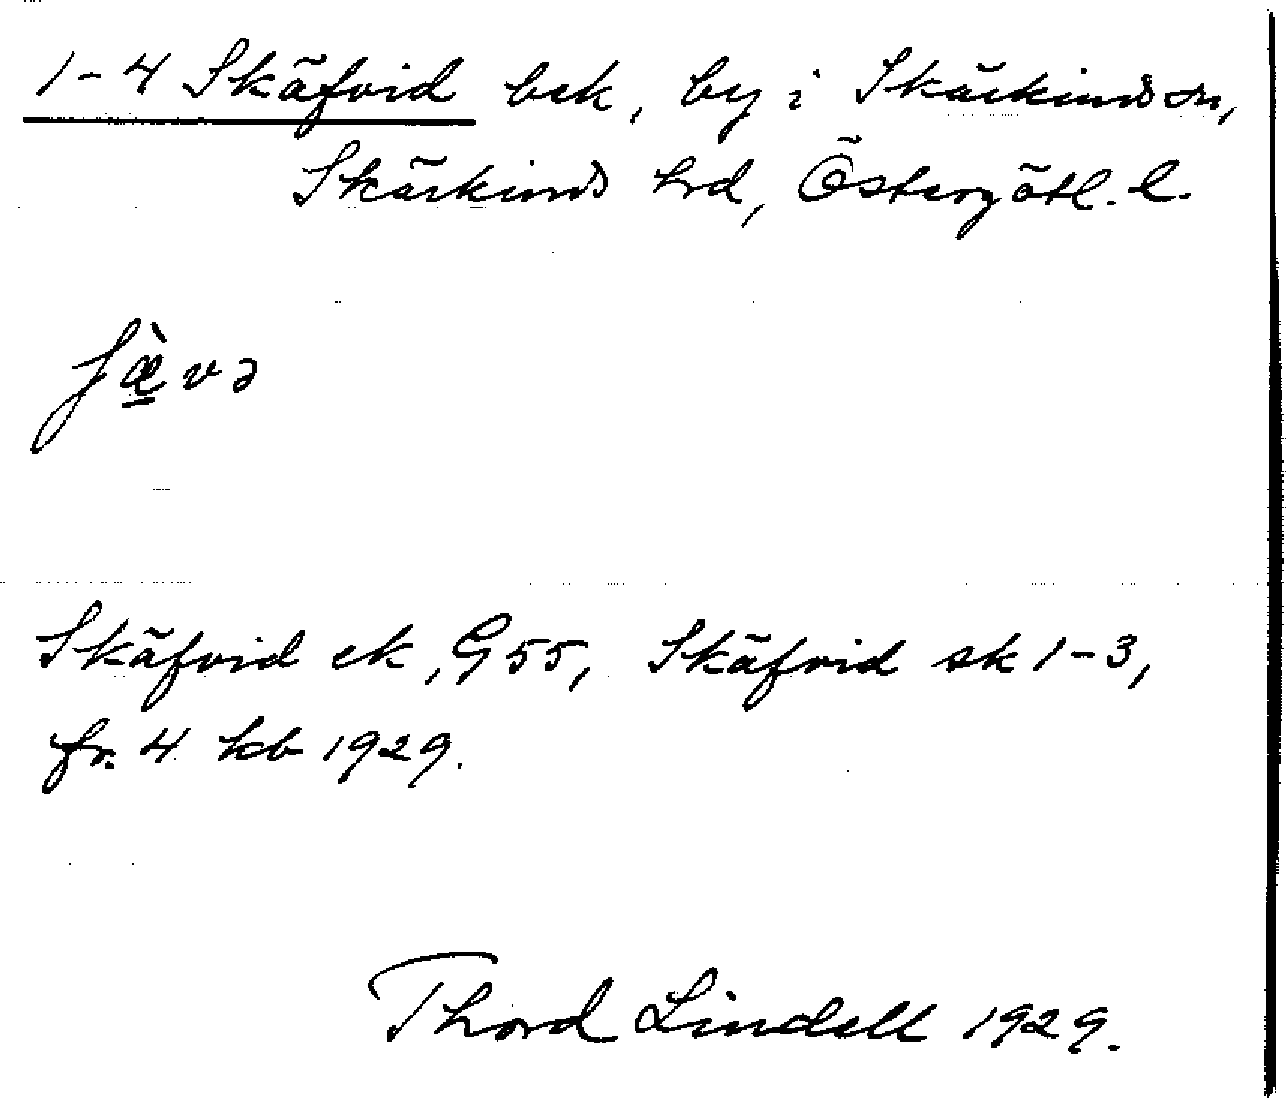 1-4 Skäfvid bek, by i Skärkinds sn,
Skärkinds hrd, Östergötl. l.
ʃæ̀və
Skäfvid ek, G55, Skäfvid sk 1-3,
fr. 4 kb 1929.
Thord Lindell 1929.